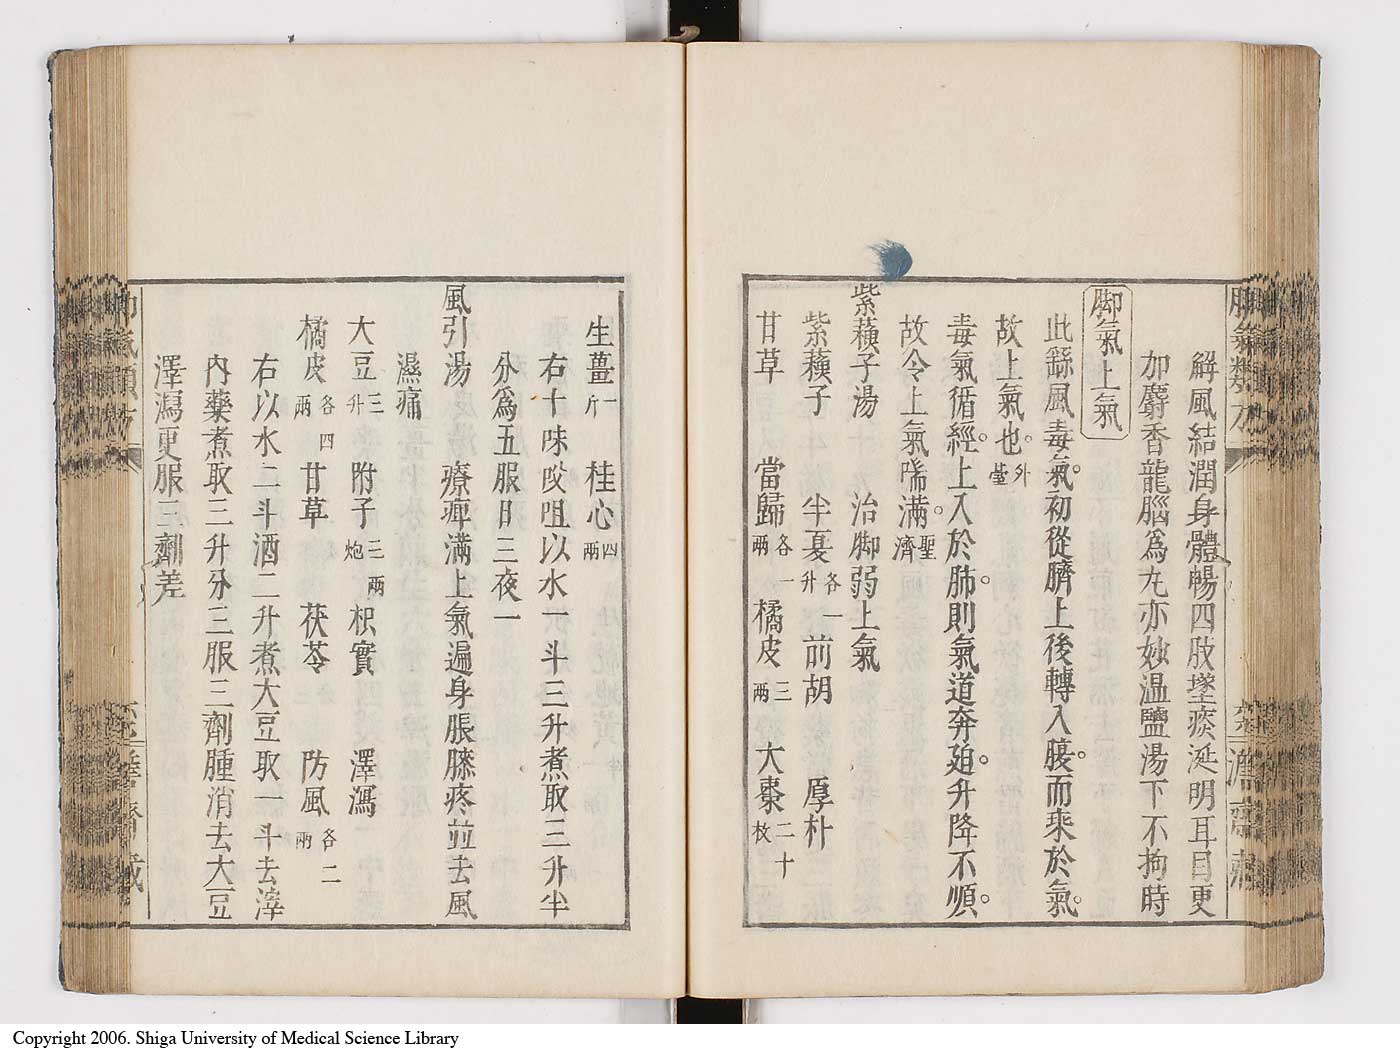 解風結潤身體暢四肢墜痰涎明耳目更
加麝香龍腦為丸亦妙温鹽湯下不拘時
脚氣上氣
此繇風毒氣。初從臍上後轉入腹。而乘於氣。
故上氣也。外臺
毒氣循經。上入於肺。則氣道奔廹。升降不順。
故令上氣喘滿。聖濟
紫蘓子湯 治脚弱上氣
紫蘓子 半夏各一升 前胡 厚朴
甘草 當歸各一兩 橘皮三兩 大棗二十枚
生薑一斤 桂心四兩
右十味㕮咀以水一斗三升煮取三升半
分爲五服日三夜二
風引湯 療痹滿上氣遍身脹膝疼並去風
濕痛
大豆三升 附子三兩炮 枳實 澤瀉
橘皮各四兩 甘草 茯苓 防風各二兩
右以水二斗酒二升煮大豆取一斗去滓
內藥煮取三升分三服三劑腫消去大豆
澤瀉更服三劑差
Copyright 2006. Shiga University of Medical Science Library